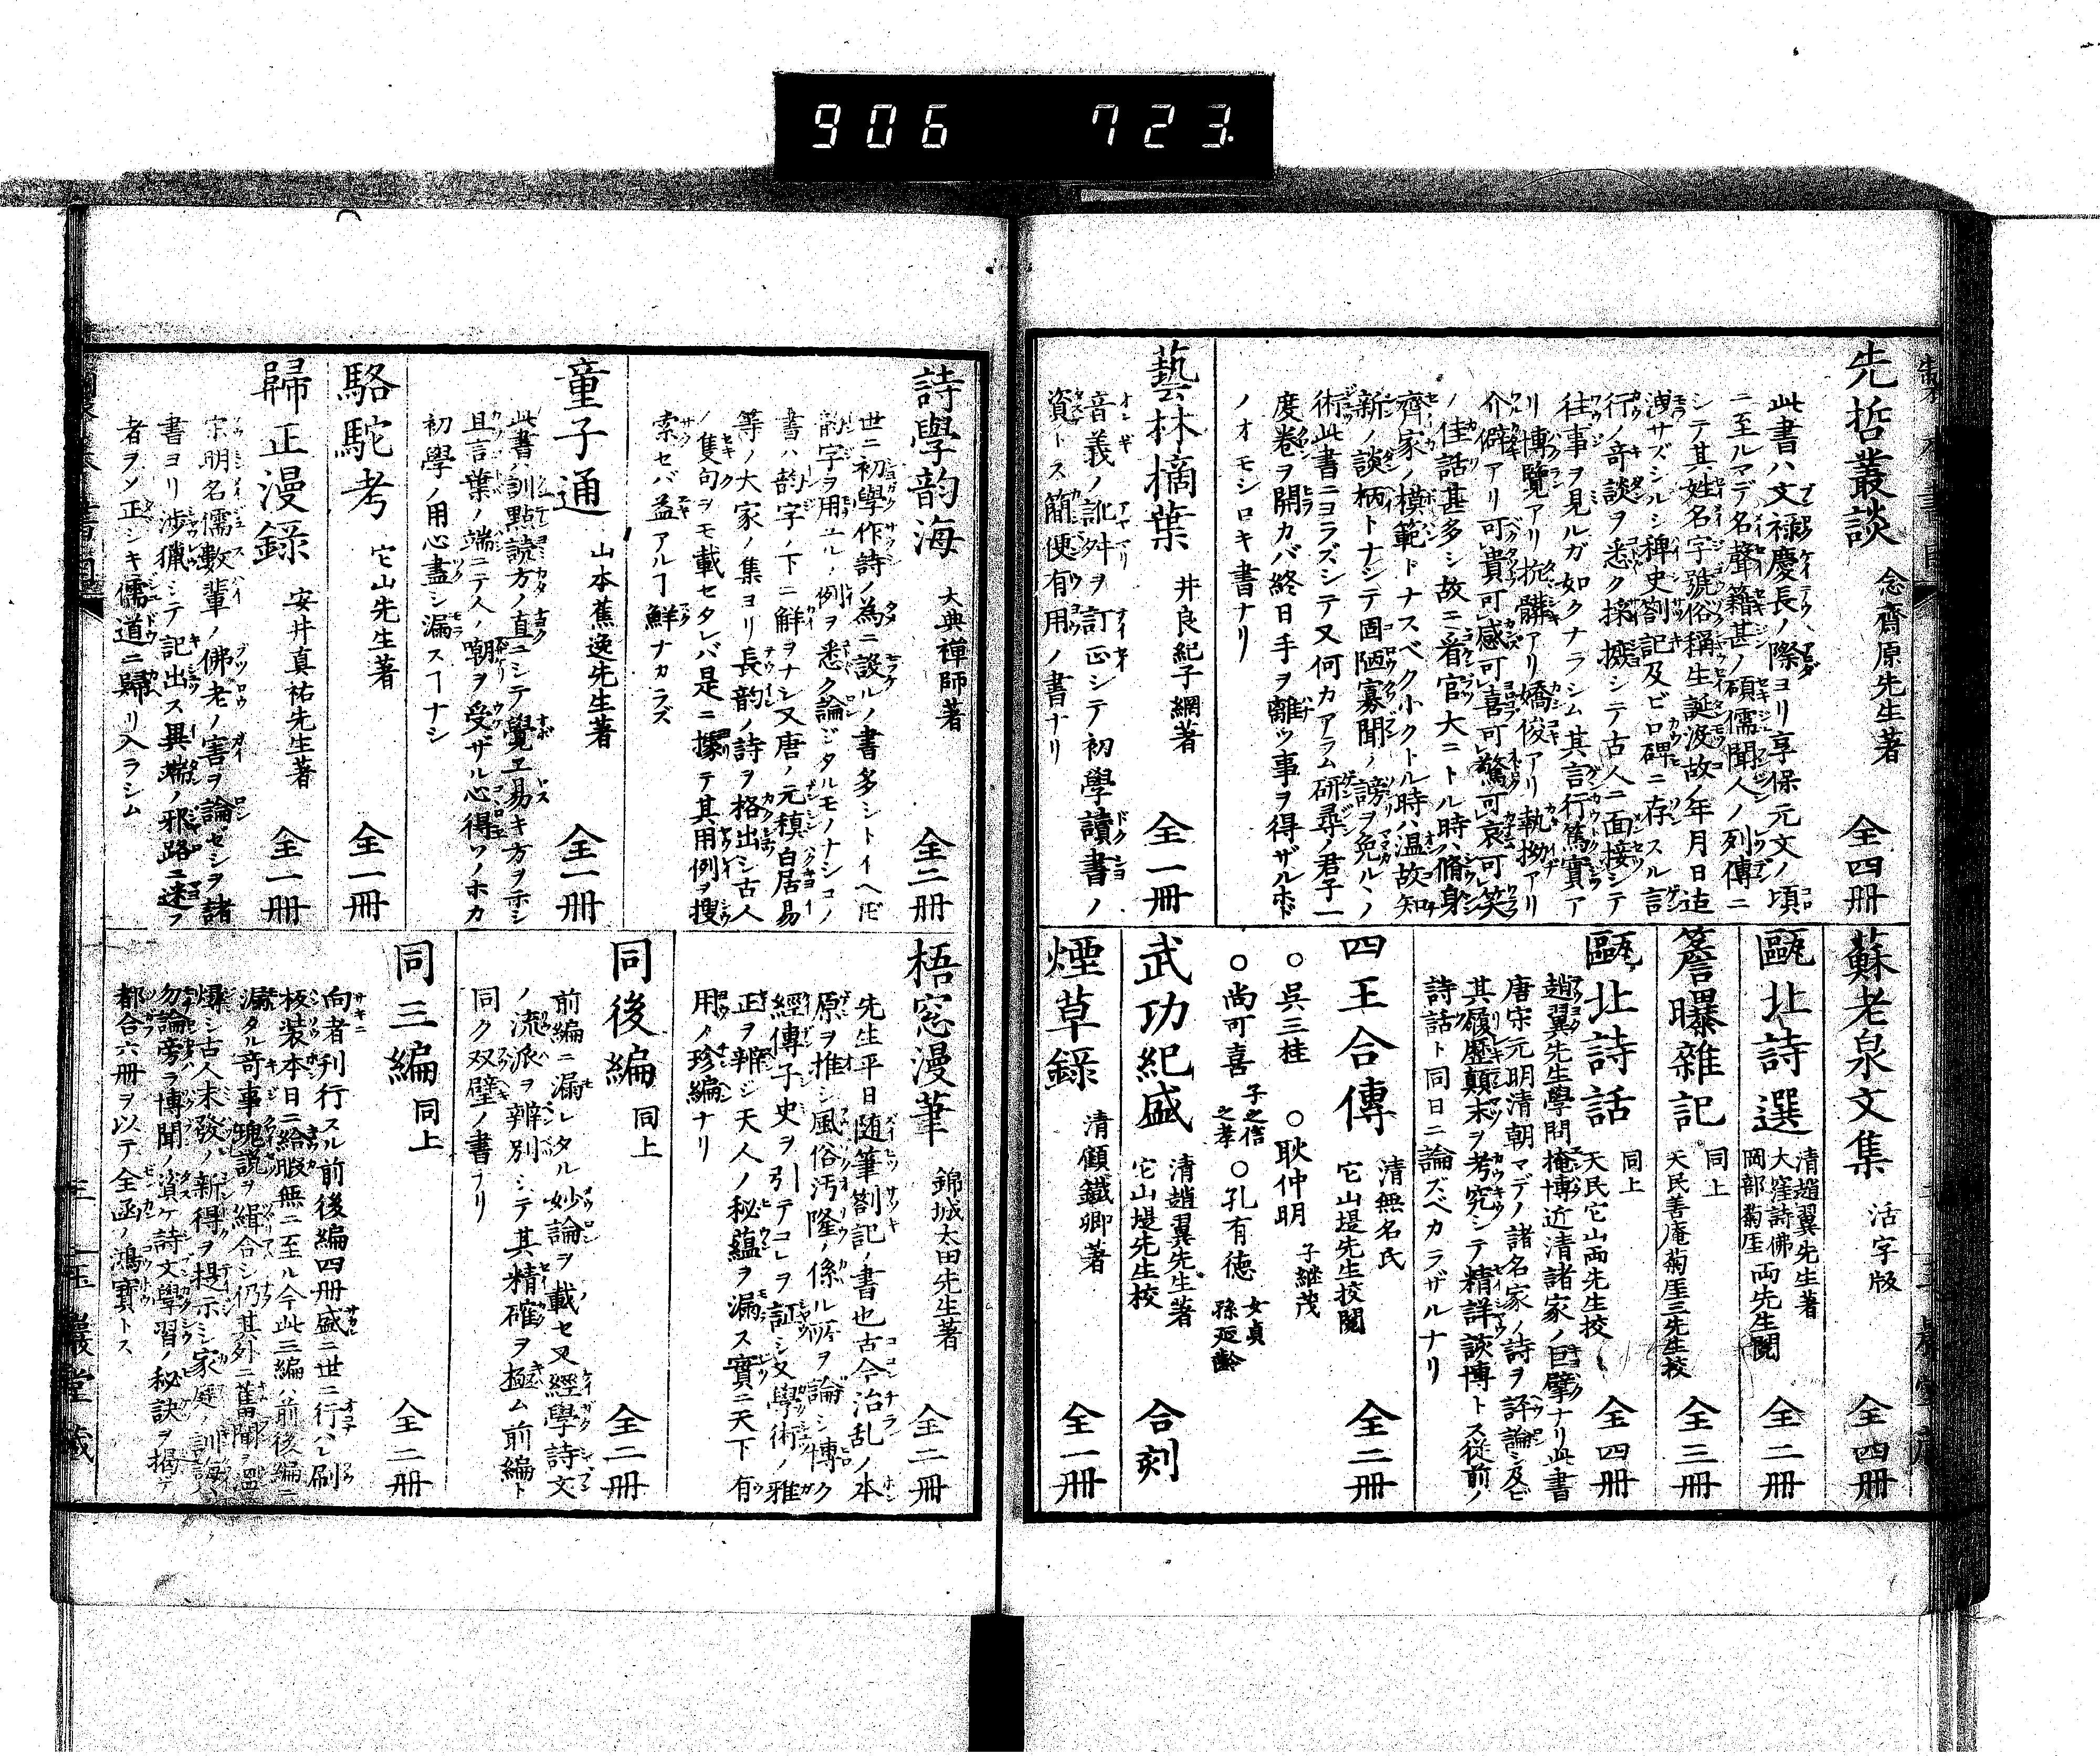 906 723
先哲叢談 念齋原先生著 全四冊
此書ハ文禄慶長ノ際ヨリ享保元文ノ頃
ニ至ルマデ名聲籍甚ノ碩儒聞人ノ列傳ニ
シテ其姓名字號俗稱生誕没故ノ年月日迠
洩サズシルシ稗史劄記及ビロ碑ニ存スル言
行ノ奇談ヲ悉ク採摭シテ古人ニ面接シテ
往事ヲ見ルガ如クナラシム其言行篤實ア
リ博覽アリ抗髒アリ嬌俊アリ執拗アリ
介僻アリ可貴可感可喜可驚可哀可笑
ノ佳話甚多シ故ニ看官大ニトル時ハ脩身
齊家ノ模範トナスベク小クトル時ハ温故知
新ノ談柄トナシテ固陋寡聞ノ謗ヲ免ルヽノ
術此書ニヨラズシテ又何カアラム研尋ノ君子一
度卷ヲ開カバ終日手ヲ離ツ事ヲ得ザルホド
ノオモシロキ書ナリ
藝林摘葉 井良紀子網著 全一冊
音義ノ訛舛ヲ訂正シテ初學讀書ノ
資トス簡便有用ノ書ナリ
蘇老泉文集 活字版 全四冊
甌北詩選 清趙翼先生著 大窪詩佛 岡部菊厓 両先生閲 全二冊
簷曝雜記 同上 天民善庵菊厓三先生校 全三冊
甌北詩話 同上 天民它山両先生校 全四冊
趙翼先生學問掩博近清諸家ノ巨擘ナリ此書
唐宋元明清朝マデノ諸名家ノ詩ヲ評論シ及ビ
其履歴顛末ヲ考究シテ精詳該博トス從前ノ
詩話ト同日ニ論ズベカラザルナリ
四王合傳 清無名氏 它山堤先生校閲 全二冊
○呉三桂 ○耿仲明 子継茂
○尚可喜 子之信 之孝 ○孔有徳 女貞 孫延齡
武功紀盛 清趙翼先生著 它山堤先生校 合刻
煙草錄 清顧鐵卿著 全一冊
詩學韵海 大典禅師著 全二冊
世ニ初學作詩ノ為ニ設ルノ書多シトイヘ𪜈
韵字ヲ用ユルノ例ヲ悉ク論ジタルモノナシコノ
書ハ韵字ノ下ニ解ヲナシ又唐ノ元稹白居易
等ノ大家ノ集ヨリ長韵ノ詩ヲ格出シ古人
ノ隻句ヲモ載セタレバ是ニ據テ其用例ヲ搜
索セバ益アルヿ鮮ナカラズ
童子通 山本蕉逸先生著 全一冊
此書ハ訓點読方ノ直ニシテ覺エ易キ方ヲ示シ
且言葉ノ端ニテ人ノ嘲ヲ受ザル心得ソノホカ
初學ノ用心盡シ漏スヿナシ
駱駝考 它山先生著 全一冊
歸正漫錄 安井真祐先生著 全一冊
宗明名儒數輩ノ佛老ノ害ヲ論ゼシヲ諸
書ヨリ渉獵シテ記出ス異端ノ邪路ニ迷フ
者ヲソ正シキ儒道ニ歸リ入ラシム
梧窓漫筆 錦城太田先生著 全二冊
先生平日随筆劄記ノ書也古今治乱ノ本
原ヲ推シ風俗汚隆ノ係ル所ヲ論シ博ク
經傳子史ヲ引テコレヲ証シ又學術ノ雅
正ヲ辨ジ天人ノ秘蘊ヲ漏ス實ニ天下有
用ノ珍編ナリ
同後編 同上 全二冊
前編ニ漏レタル妙論ヲ載セ又經學詩文
ノ流派ヲ辨別シテ其精確ヲ極ム前編ト
同ク双璧ノ書ナリ
同三編 同上 全二冊
向者刊行スル前後編四冊盛ニ世ニ行ハレ刷
板装本日ニ給暇無ニ至ル今此三編ハ前後編ニ
漏タル奇事瑰説ヲ緝合シ仍其外ニ舊聞ヲ温
シ古人未發ノ新得ヲ提示シ家庭ノ訓誨ハ
勿論旁ラ博聞ノ資ケ詩文學習ノ秘訣ヲ掲テ
都合六冊ヲ以テ全函ノ鴻寳トス
三 玉巖堂藏